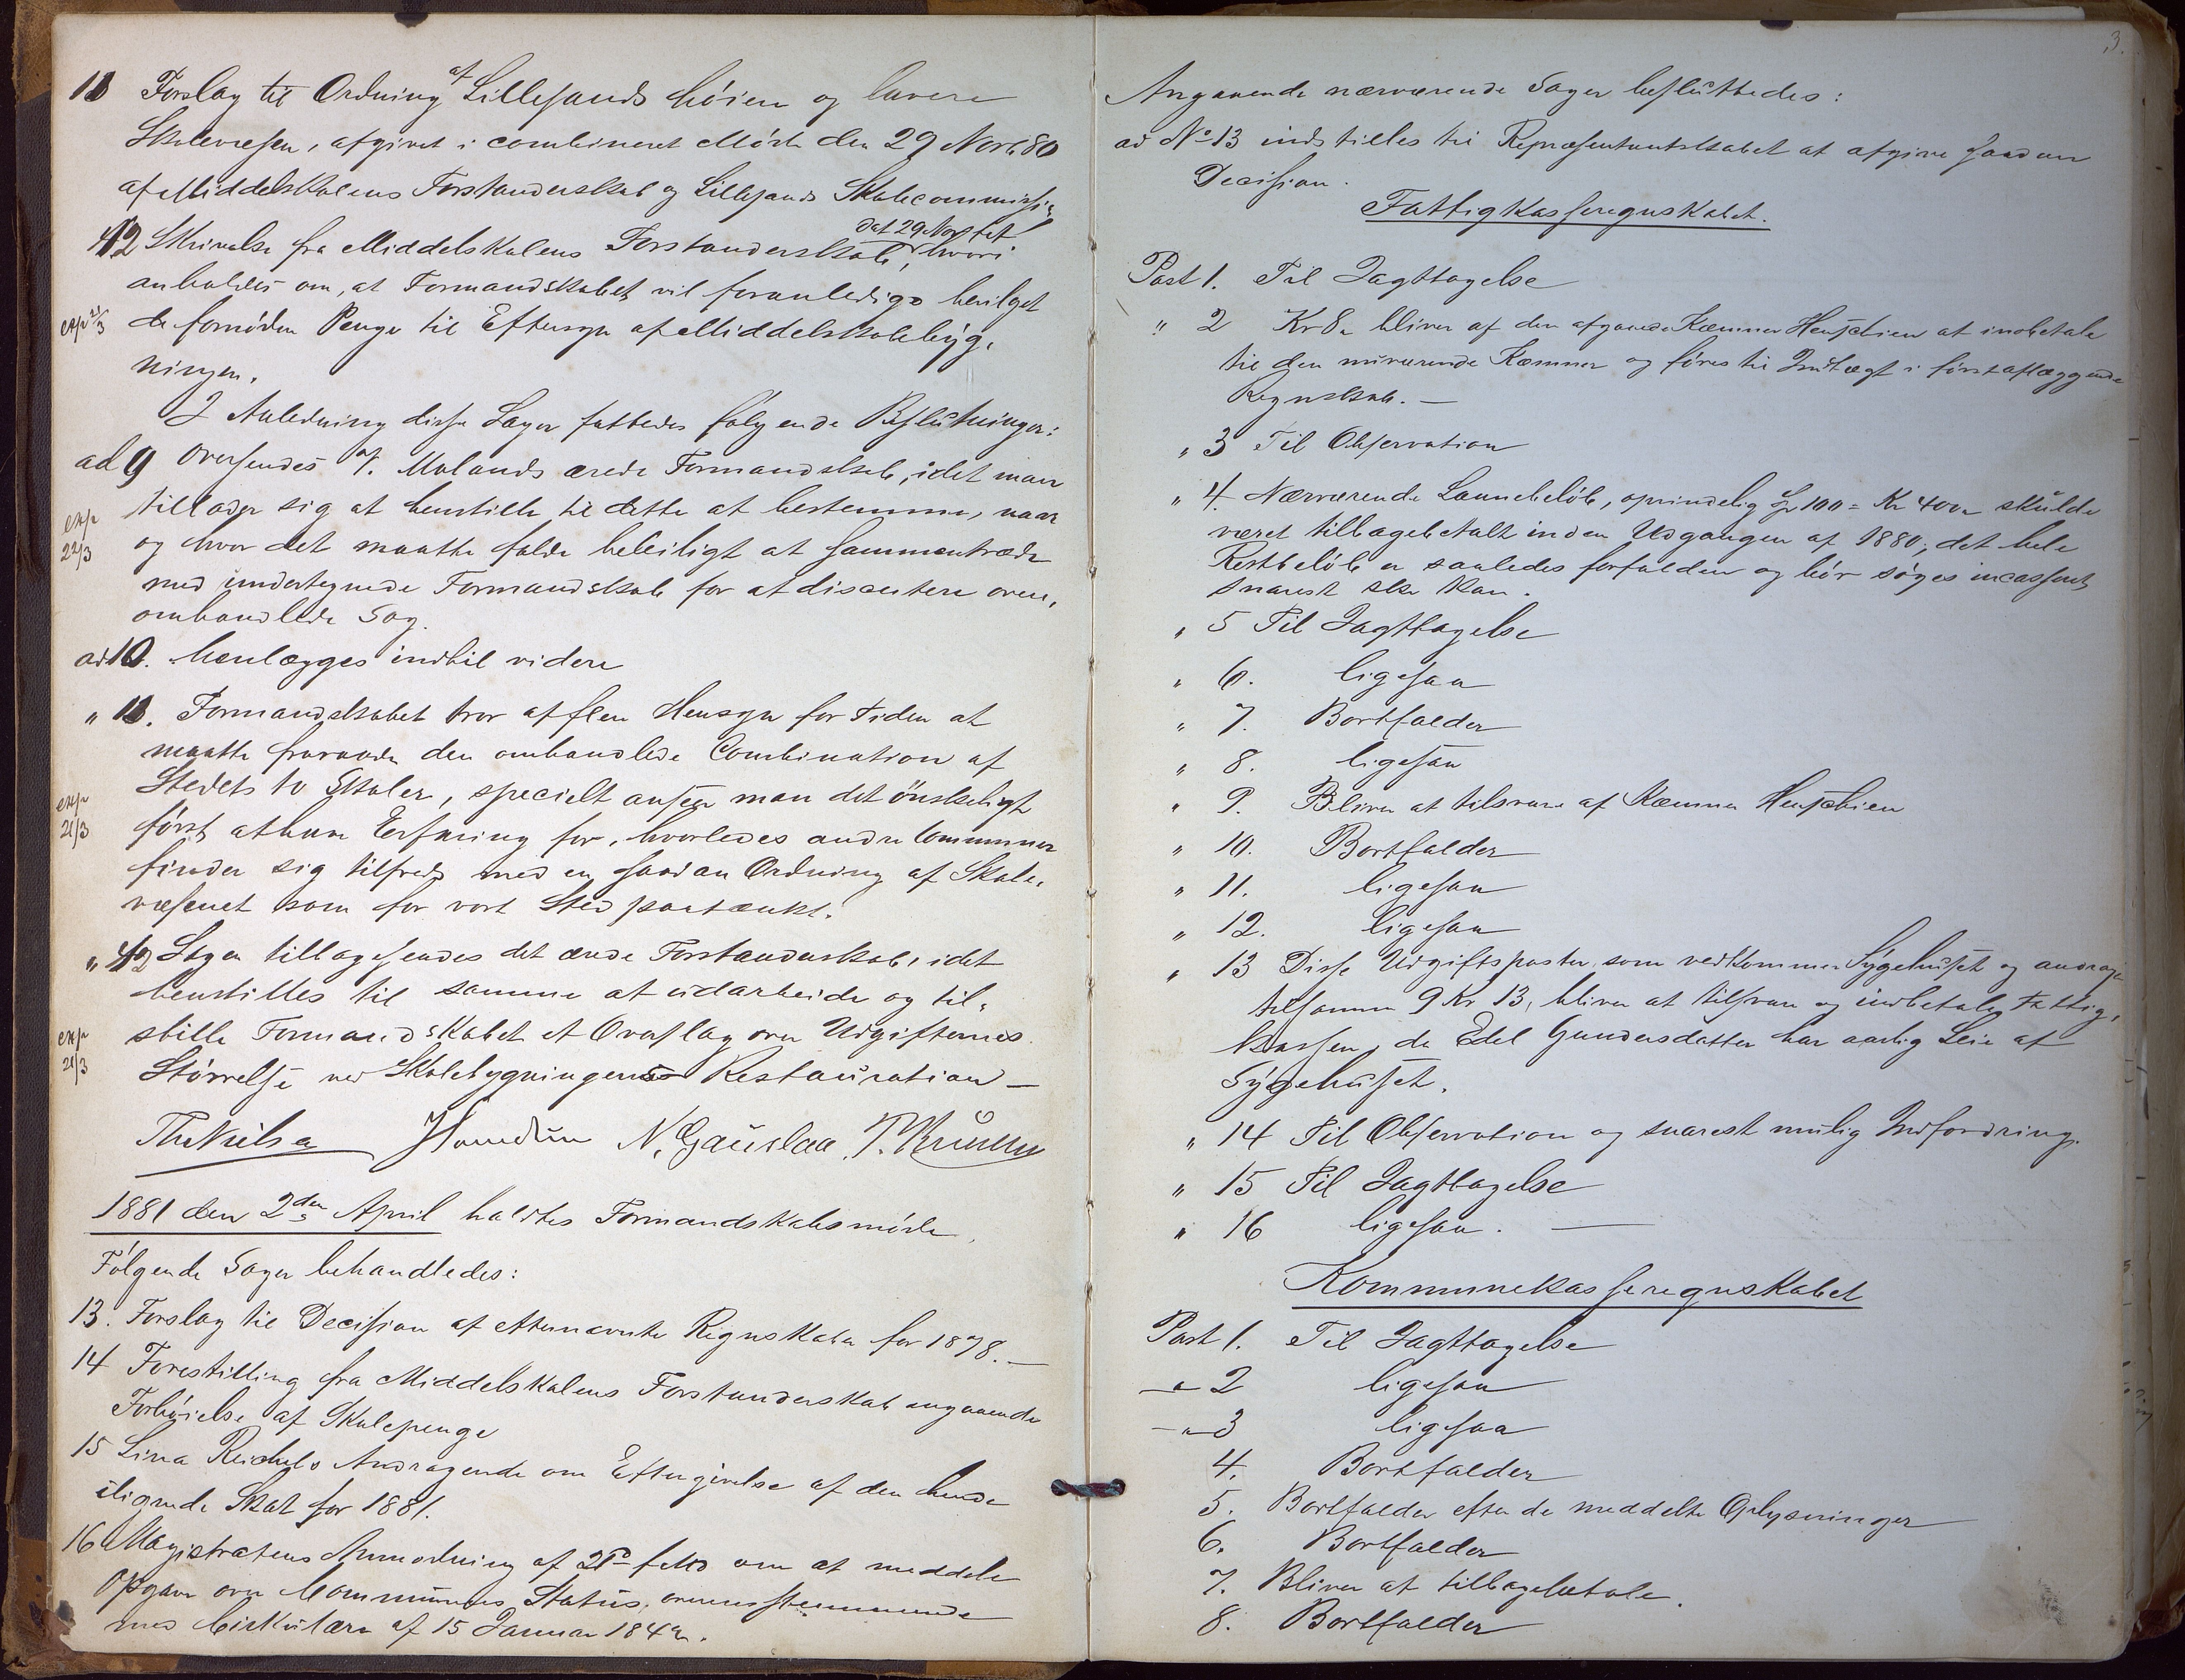 11 Forslag til Ordning af Lillesands høiere og lavere
Skolevæsen, afgivet i combineret Møde den 29 Novb. 80
af Middelskolens Forstanderskab og Lillesands Skolecommission
12 Skrivelse fra Middelskolens Forstanderskab, dat 29 Nov, hvori
anholdes om, at Formandskabet vil foranledige bevilget
exp 21/3 de fornødne Penge til Eftersyn af Middelskolebyg-
ningen.
I Anledning disse Sager fattedes følgende Beslutninger:
ad 9 Oversendes V. Molands ærede Formandskab, idet man
tillader sig at henstille til dette at bestemme, naar
exp 22/3 og hvor det maatte falde beleiligt at sammentræde
med undertegnede Formandskab for at discutere oven-
ombandlede Sag.
ad 10. henlægges indtil videre
" 11. Formandskabet tror af flere Hensyn for Tiden at
maatte fraraade den omhandlede Combination af
exp 21/3 Stedets to Skoler, specielt anseer man det ønskeligt
først at have Erfaring for, hvorledes andre Communer
finder sig tilfreds med en saadan Ordning af Skole-
væsenet som for vort Sted paatænkt.
" 12 Sagen tilbagesendes det ærede Forstanderskab, idet
henstilles til samme at udarbeide og til-
exp 21/3 stille Formandskabet et Overslag over Udgifternes
Størrelse ved Skolebygningens Restauration —
N. Gauslaa
1881 den 2den April holdtes Formandskabsmøde.
Følgende Sager behandledes:
13. Forslag til Decision af efternævnte Regnskaber for 1878. —
14 Forestilling fra Middelskolens Forstanderskab angaaende
Forhøielse af Skolepenge
15 Lina Reichelts Andragende om Eftergivelse af den hende
ilignede Skat for 1881.
16 Magistratens Anmodning af om at meddele
Opgave over Communens Status, overensstemmende
med Cirkulære af 15 Januar
3.
Angaaende nærværende Sager besluttedes:
ad No 13 indstilles til Repræsentantskabet at afgive saadan
Decision.
Fattigkasseregnskabet.
Post 1. Til Iagttagelse
" 2 Kr 8 bliver af den afgaaede Kæmner Henschien at indbetale
til den nuværende Kæmner og føres til Indtægt i først aflæggende
Regnskab. —
" 3 Til Observation
" 4. Nærværende Laanebeløb, oprindelig 100 = Kr 400 skulde
været tilbagebetalt inden Udgangen af 1880; det hele
Restbeløb er saaledes forfalden og bør søges incasseret
snarest ske kan.
" 5 Til Iagttagelse
" 6. ligesaa
" 7. Bortfalder
" 8. ligesaa
" 9. Bliver at tilsvare af Kæmner Henschien
" 10. Bortfalder
" 11. ligesaa
" 12. ligesaa
" 13 Disse Udgiftsposter, som vedkommer Sygehuset og andrage
tilsammen 9 Kr 13, bliver at tilsvare og indbetales Fattig-
kassen, da Edel Gundersdatter har aarlig Leie af
Sygehuset.
" 14 Til Observation og snarest mulig Indfordring.
" 15 Til Iagttagelse
" 16 ligesaa. —
Kommunekasseregnskabet
Post 1. Til Iagttagelse
— " 2 ligesaa
— " 3 ligesaa
4. Bortfalder
5. Bortfalder efter de meddelte Oplysninger
6. Bortfalder
7. Bliver at tilbagebetale.
8. Bortfalder